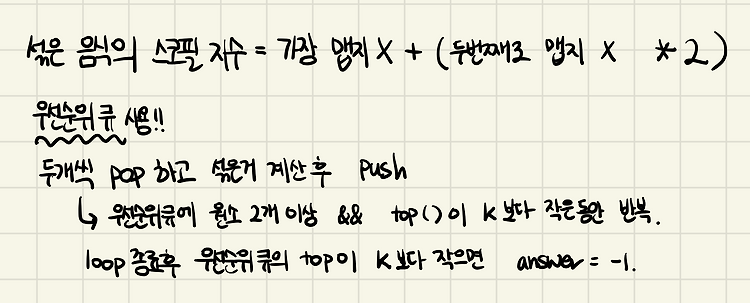 섞은 음식의 스코빌 지수 = 가장 맵지 X + (두번째로 맵지 X *2)
우선순위 큐 사용!!
두개씩 pop 하고 섞은거 계산 후 push
↳ 우선순위큐에 원소 2개 이상 && top()이 K보다 작은동안 반복.
loop 종료후 우선순위 큐의 top이 K보다 작으면 answer = -1.